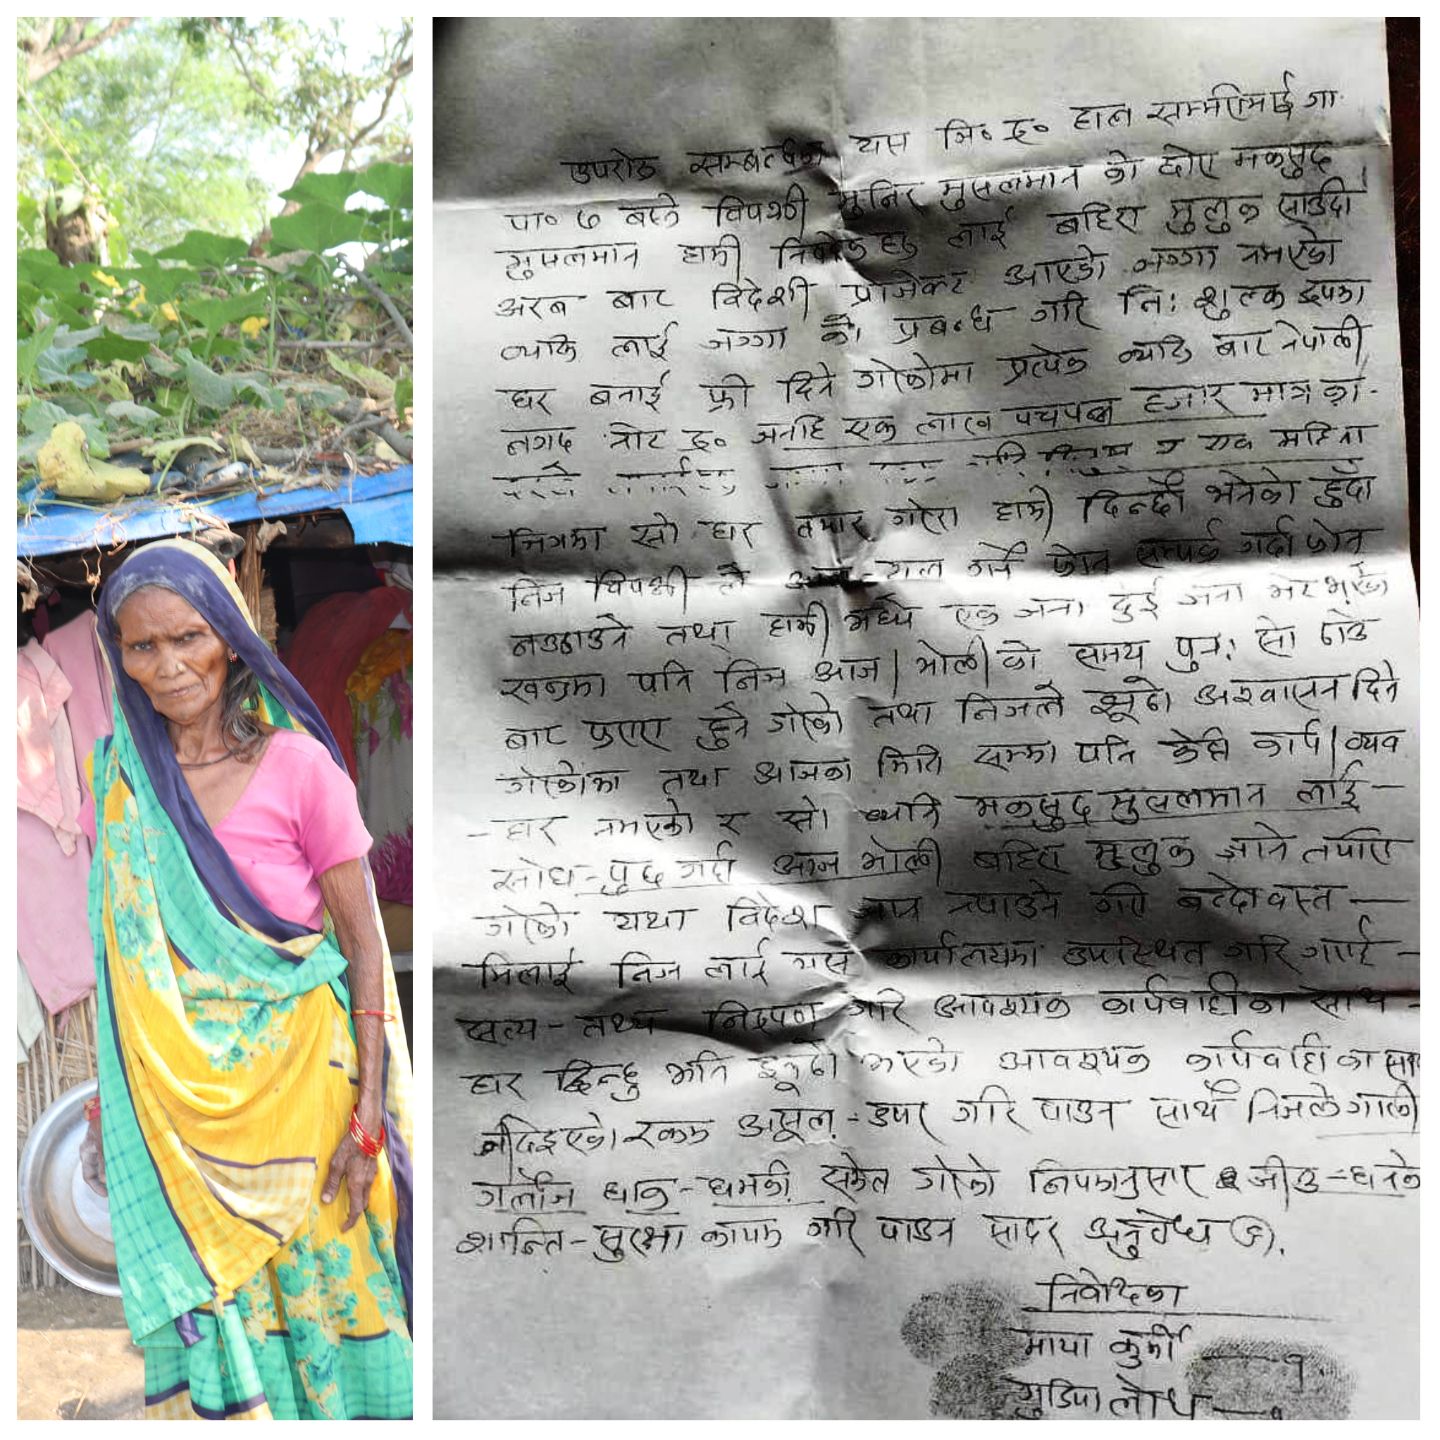 उपरोक्त सम्बन्धमा यस जि॰ रु॰ हाल सम्मरीमाई गा.
पा॰ ७ बस्ने विपक्षी मुनिर मुसलमान को छोरा मकसुद
मुसलमान हामी लाई बहिरा मुलुक साउदी
अरब बाट विदेशी प्रोजेक्ट आएको जग्गा नभएको
व्यक्ति लाई जग्गा को प्रबन्ध गरि नि: शुल्क रुपमा
घर बनाई फ्री दिने गरेकोमा प्रत्येक व्यक्ति बाट नेपाली
नगद नोट रु॰ जनहि एक लाख पचपन्न हजार मात्र
र एक महिना
भित्रमा सो घर तयार गरेर हामी दिन्छौं भनेको हुँदा
निज विपक्षी ले गर्ने फोन सम्पर्क गर्दा फोन
नउठाउने तथा हामी मध्ये एक जना दुई जना भेट भएको
खन्डमा पनि निज आज / भोली को समय पुन: सो ठाउँ
बाट फरार हुने गरेको तथा निजले झूठो अश्वासन दिने
गरेकोमा तथा आजका मिति सम्म पनि केहि कार्य / व्यव
- हार नभएको र सो व्यक्ति मकसुद मुसलमान लाई -
सोध-पुछ गर्दा आज भोली बहिरा मुलुक जाने तयारि
गरेको यथा विदेश जान नपाउने गरि बन्दोवस्त -
मिलाई निज लाई यस कार्यालयमा उपस्थित गरि गराई -
सत्य-तथ्य निरुपण गरि आवश्यक कार्यवाहीका साथ -
घर दिन्छु भनि झूठो भएको आवश्यक कार्यवाही का साथ
नदिइएको रकम असूल-उपर गरि पाउन साथै निजले गाली
गलौज धाक-धम्की समेत गरेको नियमानुसार जीउ-धनको
शान्ति-सुरक्षा कायम गरि पाउन सादर अनुरोध छ।
निवेदिका
माया कुर्मी - १.
गुडिया लोध - १